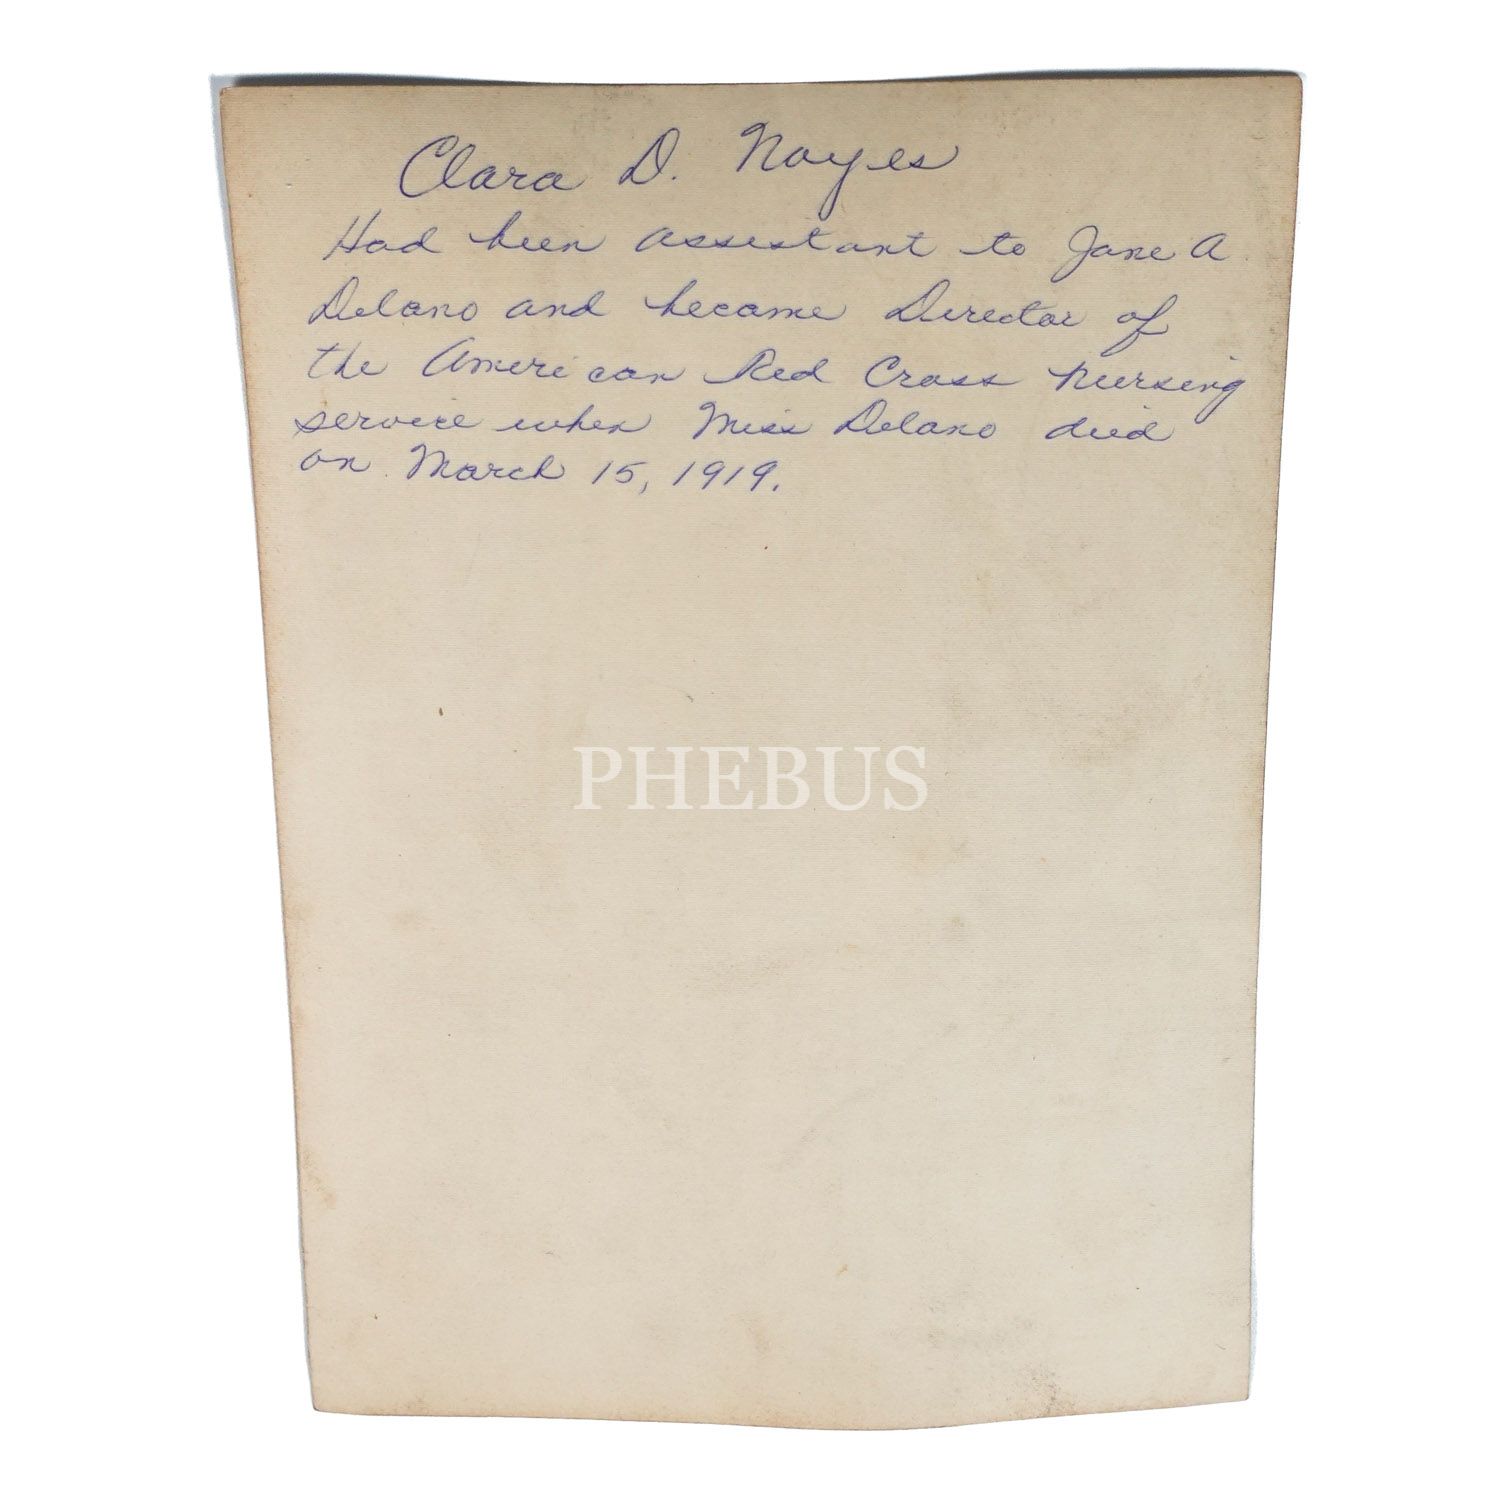 Clara D. Noyes
Had been assistant to Jane A.
Delano and became Director of
the American Red Cross Nursing
service when Miss Delano died
on March 15, 1919.
PHEBUS